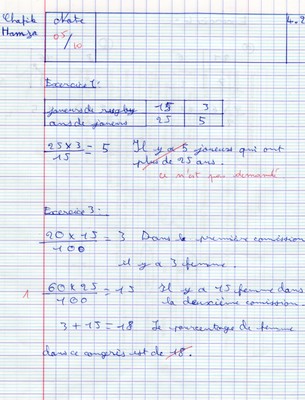 Chafik Note 4.2
Hamza 05/10
Exercice 1:
joueurs de rugby 15 3
ans de joueurs 25 5
25 x 3 / 15 = 5 Il y a 5 joueurs qui ont
plus de 25 ans.
ce n'est pas demandé
Exercice 3:
20 x 15 / 100 = 3 Dans la première comission
il y a 3 femme.
1 60 x 25 / 100 = 15 Il y a 15 femme dans
la deuxième comission.
3 + 15 = 18 Le pourcentage de femme
dans ce congrès est de 18.